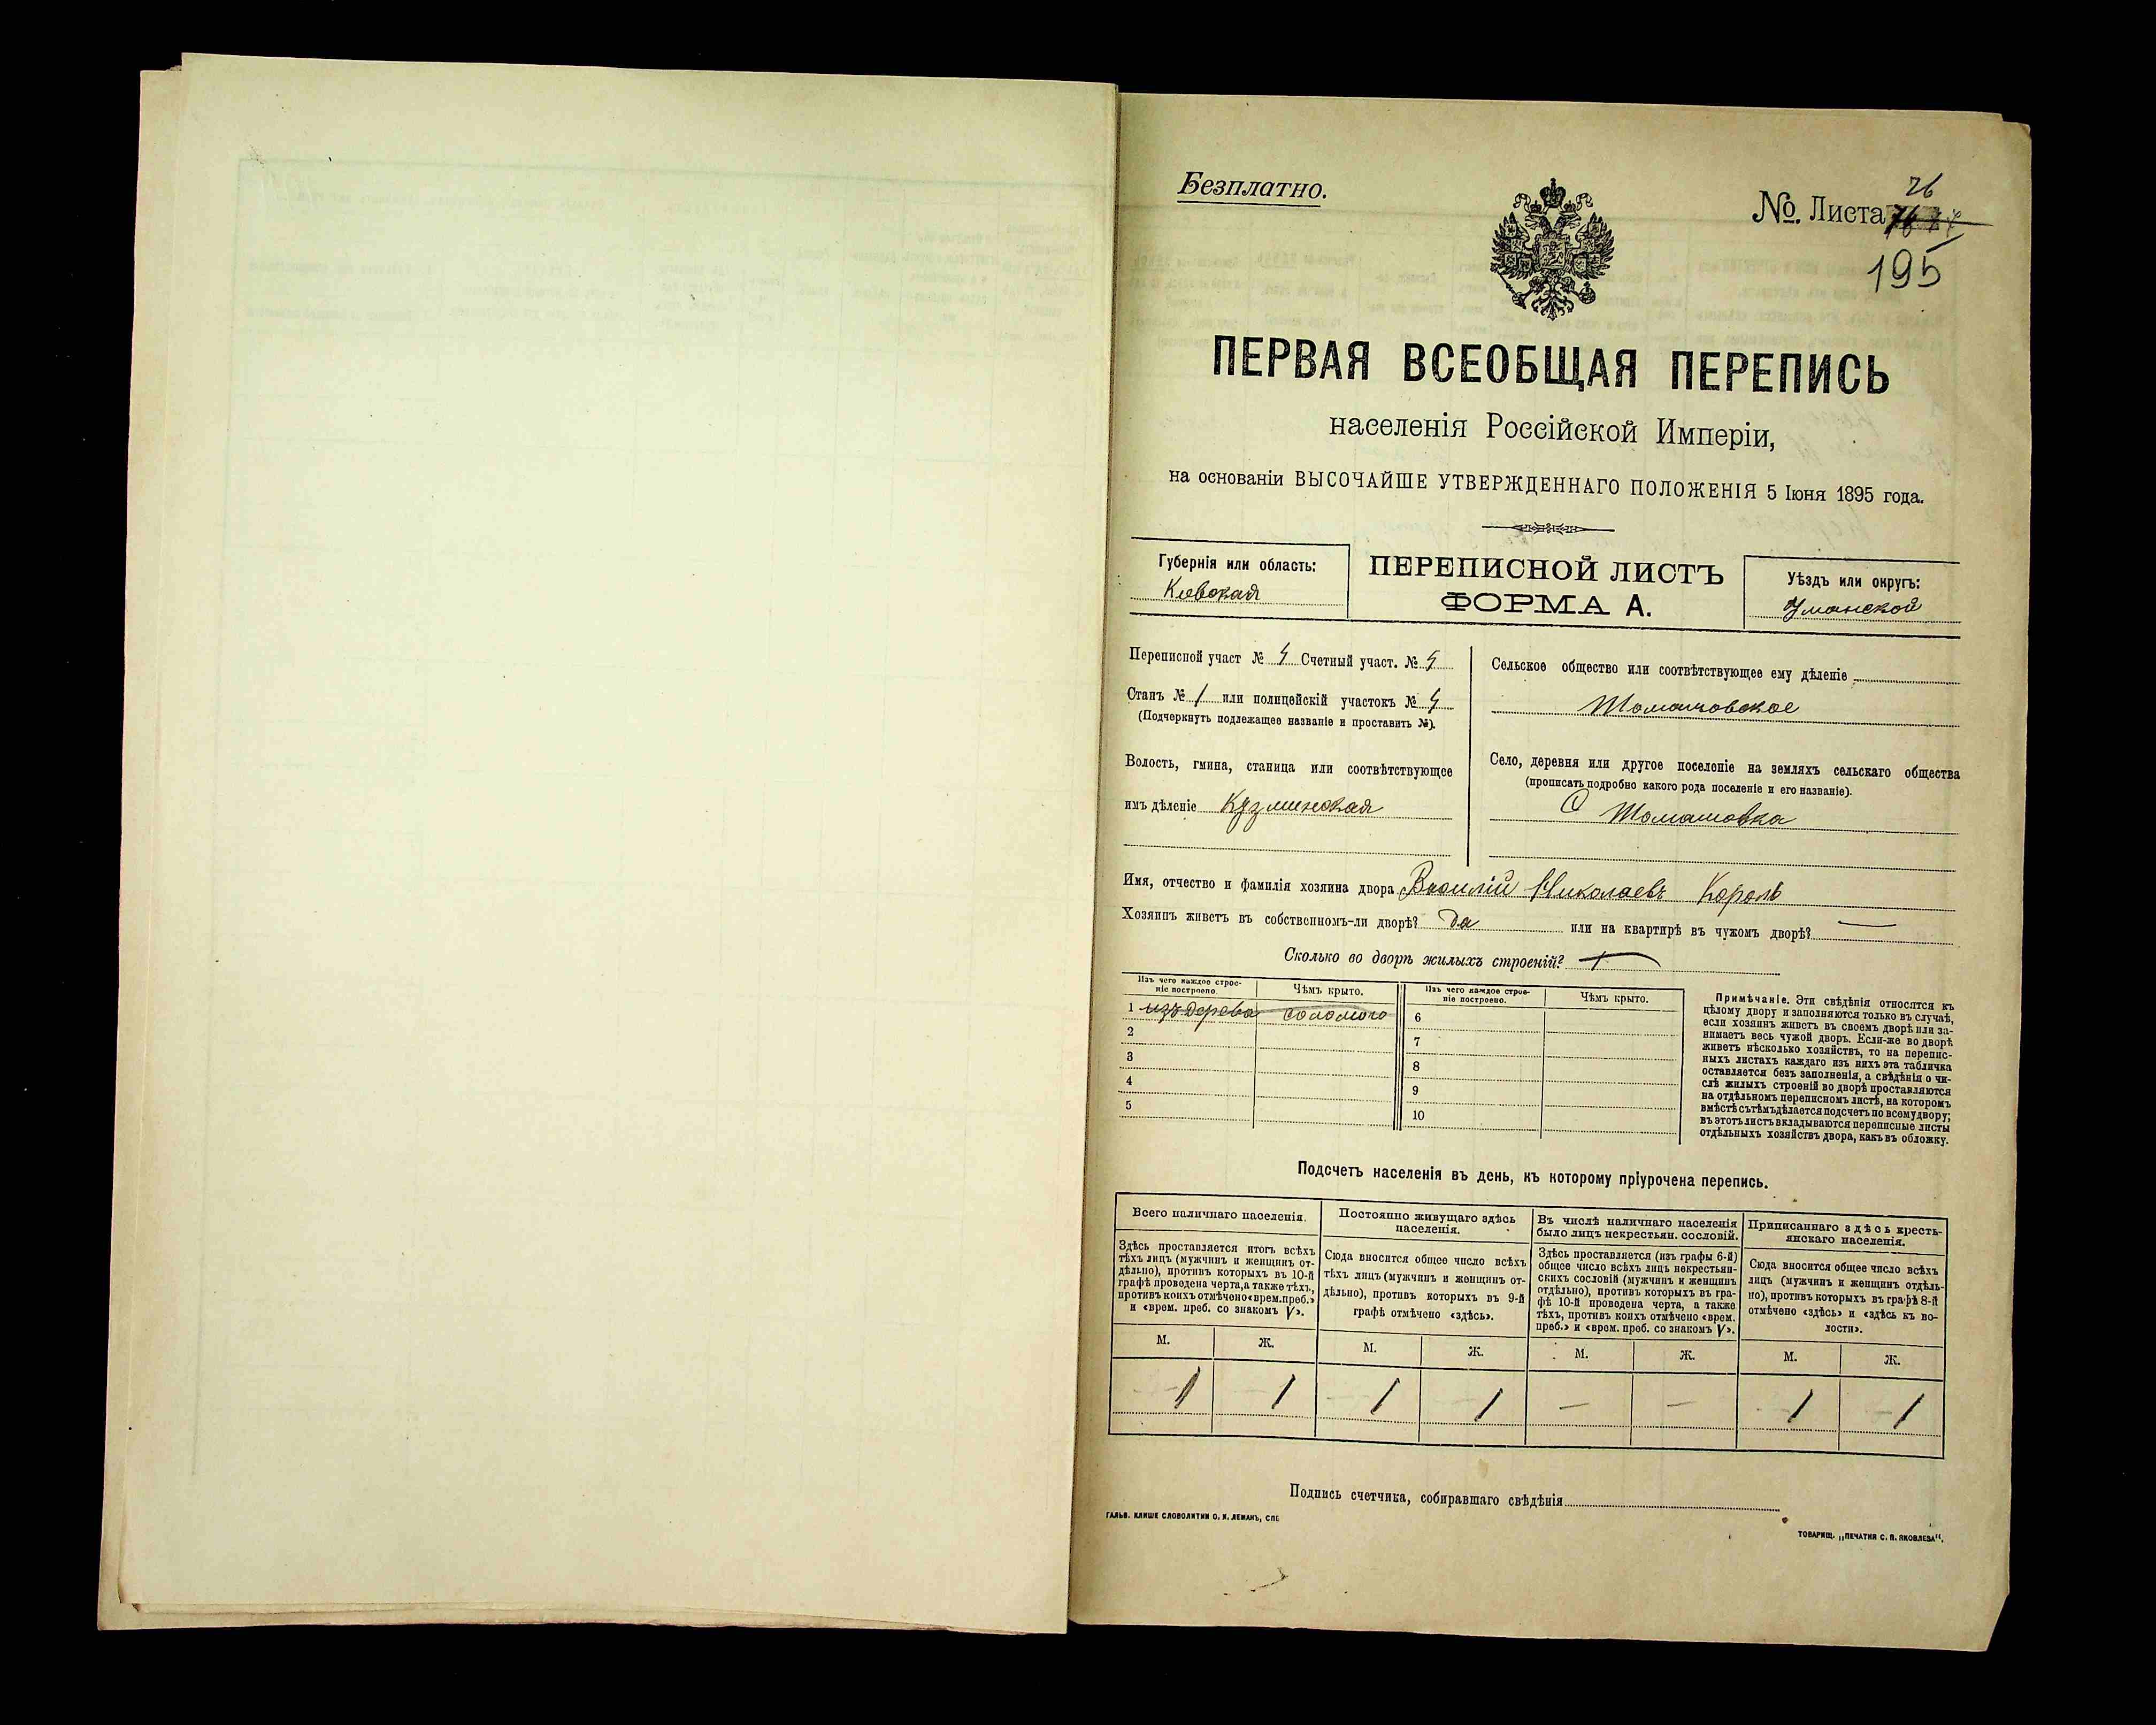 Безплатно.
№. Листа 76
195
ПЕРВАЯ ВСЕОБЩАЯ ПЕРЕПИСЬ
населенія Россійской Имперіи,
на основаніи ВЫСОЧАЙШЕ УТВЕРЖДЕННАГО ПОЛОЖЕНІЯ 5 Іюня 1895 года.
Губернія или область:
Киевская
ПЕРЕПИСНОЙ ЛИСТЪ
ФОРМА А.
Уѣздъ или округъ:
Уманской
Переписной участ № 4 Счетный участ. № 5
Станъ № 1 или полицейскій участокъ № 4
(Подчеркнуть подлежащее названіе и проставить №).
Волость, гмина, станица или соотвѣтствующее
имъ дѣленіе Кузминская
Сельское общество или соотвѣтствующее ему дѣленіе
Томашовское
Село, деревня или другое поселеніе на земляхъ сельскаго общества
(прописать подробно какого рода поселеніе и его названіе).
С Томашовка
Имя, отчество и фамилія хозяина двора Василій Николаевъ Король
Хозяинъ живетъ въ собственномъ-ли дворѣ? да или на квартирѣ въ чужомъ дворѣ? —
Сколько во дворѣ жилыхъ строеній? 1
Изъ чего каждое строе-
ніе построено.
Чѣмъ крыто.
1 изъ дерева соломою
2
3
4
5
Изъ чего каждое строе-
ніе построено.
Чѣмъ крыто.
6
7
8
9
10
Примѣчаніе. Эти свѣдѣнія относятся къ
цѣлому двору и заполняются только въ случаѣ,
если хозяинъ живетъ въ своемъ дворѣ или за-
нимаетъ весь чужой дворъ. Если-же во дворѣ
живетъ нѣсколько хозяйствъ, то на перепис-
ныхъ листахъ каждаго изъ нихъ эта табличка
оставляется безъ заполненія, а свѣдѣнія о чи-
слѣ жилыхъ строеній во дворѣ проставляются
на отдѣльномъ переписномъ листѣ, на которомъ
вмѣстѣ съ тѣмъ дѣлается подсчетъ по всему двору;
въ этотъ листъ вкладываются переписные листы
отдѣльныхъ хозяйствъ двора, какъ въ обложку.
Подсчетъ населенія въ день, къ которому пріурочена перепись.
Всего наличнаго населенія.
Здѣсь проставляется итогъ всѣхъ
тѣхъ лицъ (мужчинъ и женщинъ от-
дѣльно), противъ которыхъ въ 10-й
графѣ проведена черта, а также тѣхъ,
противъ коихъ отмѣчено «врем. преб.»
и «врем. преб. со знакомъ V».
М. Ж.
1 1
Постоянно живущаго здѣсь
населенія.
Сюда вносится общее число всѣхъ
тѣхъ лицъ (мужчинъ и женщинъ от-
дѣльно), противъ которыхъ въ 9-й
графѣ отмѣчено «здѣсь».
М. Ж.
1 1
Въ числѣ наличнаго населенія
было лицъ некрестьян. сословій.
Здѣсь проставляется (изъ графы 6-й)
общее число всѣхъ лицъ некрестьян-
скихъ сословій (мужчинъ и женщинъ
отдѣльно), противъ которыхъ въ гра-
фѣ 10-й проведена черта, а также
тѣхъ, противъ коихъ отмѣчено «врем.
преб.» и «врем. преб. со знакомъ V».
М. Ж.
— —
Приписаннаго здѣсь кресть-
янскаго населенія.
Сюда вносится общее число всѣхъ
лицъ (мужчинъ и женщинъ отдѣль-
но), противъ которыхъ въ графѣ 8-й
отмѣчено «здѣсь» и «здѣсь къ во-
лости».
М. Ж.
1 1
Подпись счетчика, собиравшаго свѣдѣнія
ГАЛЬВ. КЛИШЕ СЛОВОЛИТНИ О. И. ЛЕМАНЪ, СПБ
ТОВАРИЩ. „ПЕЧАТНЯ С. П. ЯКОВЛЕВА“.